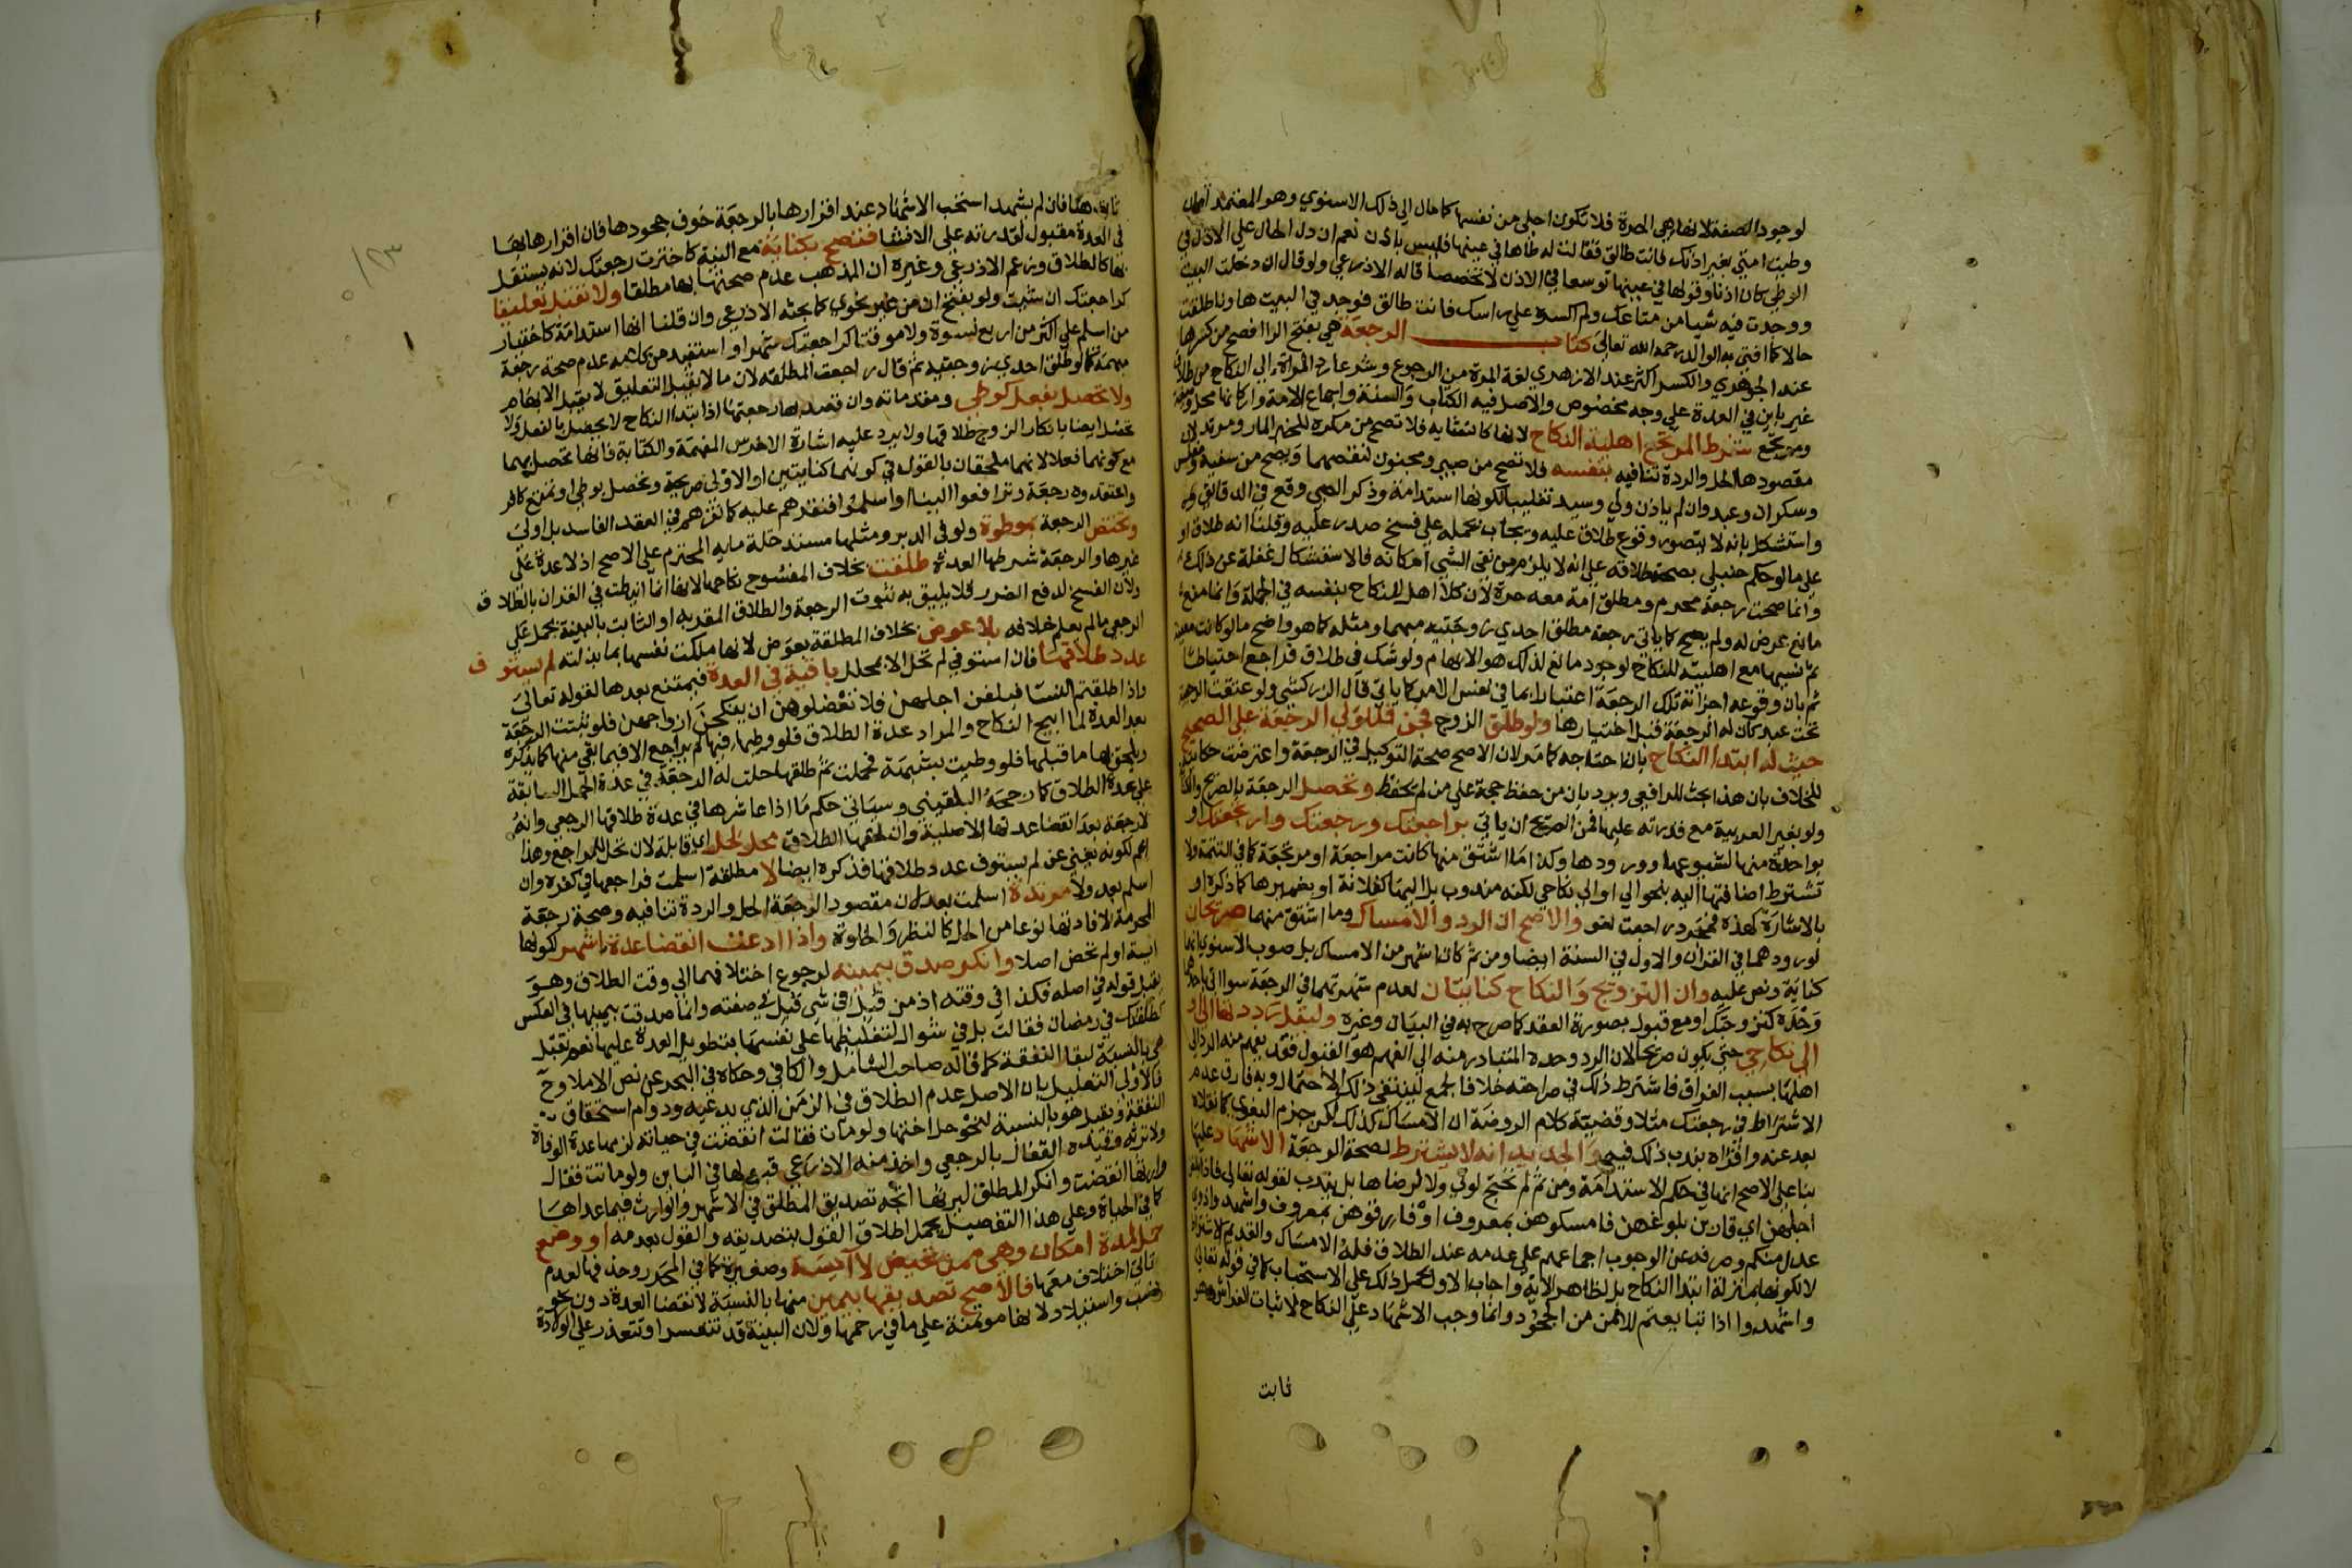 لوجود الصفة لانها هي المرة فلا تكون اجلى من نفسها كما مال الي ذلك الاسنوي وهو المعتمد
وطيت امتي بغير اذنك فانت طالق فقالت له طاها في عينها فليس باذن نعم ان دل الحال علي الاذن في
الوطي كان اذنا وقولها في عينها توسعا في الاذن لا تخصصا قاله الاذرعي ولو قال ان دخلت البيت
ووجدت فيه شيا من متاعك ولم اكسره علي راسك فانت طالق فوجد في البيت هاونا طلقت
حالا كما افتى به الوالد رحمه الله تعالى كتاب الرجعة هي بفتح الرا افصح من كسرها
عند الجوهري والكسر اكثر عند الازهري لغة المرة من الرجوع وشرعا رد المراة الي النكاح من طلاق
غير باين في العدة علي وجه مخصوص والاصل فيه الكتاب والسنة واجماع الامة واركانها محل وصيغة
ومرتجع شرط المرتجع اهلية النكاح لانها كانشايه فلا تصح من مكره للخبر المار ومرتد لان
مقصودها الحل والردة تنافيه بنفسه فلا تصح من صبي ومجنون لنقصهما وتصح من سفيه ومفلس
وسكران وعبد وان لم ياذن ولي وسيد تغليبا لكونها استدامة وذكر الصبي وقع في الدقايق
واستشكل بانه لا يتصور وقوع طلاق عليه ويجاب بحمله علي فسخ صدر عليه وقلنا انه طلاق او
علي ما لو حكم حنبلي بصحة طلاقه علي انه لا يلزم من نفي الشي امكانه فالاستشكال غفلة عن ذلك
وانما صحت رجعة محرم ومطلق امة معه حرة لان كلا اهل للنكاح بنفسه في الجملة وانما منع
مانع عرض له ولم يصح كما ياتي رجعة مطلق احدي زوجتيه مبهما ومثله كما هو واضح ما لو كانت معينة
ثم نسيها مع اهليته للنكاح لوجود مانع لذلك هو الابهام ولو شك في طلاق فراجع احتياطا
ثم بان وقوعه اجزاته تلك الرجعة اعتبارا بما في نفس الامر كما ياتي قال الزركشي ولو عتقت الرجعية
تحت عبد كان له الرجعة قبل اختيارها ولو طلق الزوج فجن فللولي الرجعة على الصحيح
حيث له ابتدا النكاح بان احتاجه كما مر لان الاصح صحة التوكيل في الرجعة واعترضت حكايته
للخلاف بان هذا بحث للرافعي ويرد بان من حفظ حجة علي من لم يحفظ وتحصل الرجعة بالصريح
ولو بغير العربية مع قدرته عليها فمن الصريح ان ياتي براجعتك ورجعتك وارتجعتك او
بواحدة منها لشيوعها وورودها وكذا ما اشتق منها كانت مراجعة او مرتجعة كما في التتمة ولا
تشترط اضافتها اليه بنحو الي او الي نكاحي لكنه مندوب بل اليها كفلانة او بضميرها كما ذكره او
بالاشارة كهذه فمجرد راجعت لغو والاصح ان الرد والامساك وما اشتق منهما صريحان
لورودهما في القران والاول في السنة ايضا ومن ثم كان اشهر من الامساك بل صوب الاسنوي انها
كناية ونص عليه وان التزويج والنكاح كنايتان لعدم شهرتهما في الرجعة سوا اتي باحدهما
وحده كتزوجتك او مع قبول بصورة العقد كما صرح به في البيان وغيره وليقل رددتها الي او
الي نكاحي حتى يكون صريحا لان الرد وحده المتبادر منه الي الفهم هو القبول فقد يفهم منه الرد الي
اهلها بسبب الفراق فاشترط ذلك في صراحته خلافا لجمع لينتفي ذلك الاحتمال وبه فارق عدم
الاشتراط في رجعتك مثلا وقضية كلام الروضة ان الامساك كذلك لكن جزم البغوي كما نقلاه
بعد عنه واقراه بندب ذلك فيه والجديد انه لا يشترط لصحة الرجعة الاشهاد عليها
بنا علي الاصح انها في حكم الاستدامة ومن ثم لم تحتج لولي ولا لرضاها بل يندب لقوله تعالى فاذا بلغن
اجلهن اي قاربن بلوغهن فامسكوهن بمعروف او فارقوهن بمعروف واشهدوا ذوي
عدل منكم وصرفه عن الوجوب اجماعهم علي عدمه عند الطلاق فلذا الامساك والقديم الاشتراط
لا لكونها بمنزلة ابتدا النكاح بل لظاهر الاية واجاب الاول بحمل ذلك علي الاستحباب كما في قوله تعالى
واشهدوا اذا تبايعتم للامن من الجحود وانما وجب الاشهاد علي النكاح لاثبات الفراش وهو
ثابت
ثابت هنا فان لم يشهد استحب الاشهاد عند اقرارها بالرجعة خوف جحودها فان اقرارها بها
في العدة مقبول لقدرته علي الانشا فتصح بكناية مع النية كاخترت رجعتك لانه يستقل
بها كالطلاق وزعم الاذرعي وغيره ان المذهب عدم صحتها بها مطلقا ولا تقبل تعليقا
كراجعتك ان شيت ولو بفتح ان من غير نحوي كما بحثه الاذرعي وان قلنا انها استدامة كاختيار
من اسلم علي اكثر من اربع نسوة ولا موقتا كراجعتك شهرا واستفيد من كلامه عدم صحة رجعة
مبهمة كما لو طلق احدي زوجتيه ثم قال راجعت المطلقة لان ما لا يقبل التعليق لا يقبل الابهام
ولا تحصل بفعل كوطي ومقدماته وان قصد بها رجعتها اذ ابتدا النكاح لا يحصل بالفعل ولا
تحصل ايضا بانكار الزوج طلاقها ولا يرد عليه اشارة الاخرس المفهمة والكتابة فانها تحصل بهما
مع كونهما فعلا لانهما ملحقان بالقول في كونهما كنايتين او الاولى صريحة وتحصل بوطي او تمتع كافر
واعتقدوه رجعة وترافعوا الينا او اسلموا فنقرهم عليه كما نقرهم في العقد الفاسد بل اولى
وتختص الرجعة بموطوة ولو في الدبر ومثلها مستدخلة مايه المحترم علي الاصح اذ لا عدة علي
غيرها والرجعة شرطها العدة طلقت بخلاف المفسوخ نكاحها لانها انما انيطت في القران بالطلاق
ولان الفسخ لدفع الضرر فلا يليق به ثبوت الرجعة والطلاق المقر به او الثابت بالبينة يحمل علي
الرجعي ما لم يعلم خلافه بلا عوض بخلاف المطلقة بعوض لانها ملكت نفسها بما بذلته لم يستوف
عدد طلاقها فان استوفي لم تحل الا بمحلل باقية في العدة فيمتنع بعدها لقوله تعالى
واذا طلقتم النسا فبلغن اجلهن فلا تعضلوهن ان ينكحن ازواجهن فلو ثبتت الرجعة
بعد العدة لما ابيح النكاح والمراد عدة الطلاق فلو وطيها فيها لم يراجع الا فيما بقي منها كما يذكره
ويلحق بها ما قبلها فلو وطيت بشبهة فحملت ثم طلقها حلت له الرجعة في عدة الحمل السابقة
علي عدة الطلاق كما رجحه البلقيني وسياتي حكم ما اذا عاشرها في عدة طلاقها الرجعي وانه
لا رجعة بعد انقضا عدتها الاصلية وان لحقها الطلاق محل لحل اي قابلة لان تحل للمراجع وهذا
اعم لكونه يغني عن لم يستوف عدد طلاقها فذكره ايضا لا مطلقة اسلمت فراجعها في كفره وان
اسلم بعد ولا مرتدة اسلمت بعد لان مقصود الرجعة الحل والردة تنافيه وصحة رجعة
المحرمة لافادتها نوعا من الحل كالنظر والخلوة واذا ادعت انقضا عدة باشهر لكونها
ايسة او لم تحض اصلا وانكر صدق بيمينه لرجوع اختلافهما الي وقت الطلاق وهو
يقبل قوله في اصله فكذا في وقته اذ من قبل في شي قبل في صفته وانما صدقت بيمينها في العكس
كطلقتك في رمضان فقالت بل في شوال لتغليظها علي نفسها بتطويل العدة عليها نعم تقبل
هي بالنسبة لبقا النفقة كما قاله صاحب الشامل والكافي وحكاه في البحر عن نص الاملا وح
فالاولى التعليل بان الاصل عدم الطلاق في الزمن الذي يدعيه ودوام استحقاق
النفقة ويقبل هو بالنسبة لنحو حل اختها ولو مات فقالت انقضت في حياته لزمها عدة الوفاة
ولا ترثه وقيده القفال بالرجعي واخذ منه الاذرعي قبولها في الباين ولو ماتت فقال
وارثها انقضت وانكر المطلق ليرثها اتجه تصديق المطلق في الاشهر والوارث فيما عداها
كما في الحياة وعلي هذا التفصيل يحمل اطلاق القول بتصديقه والقول بعدمه او وضع
حمل لمدة امكان وهي ممن تحيض لا ايسة وصغيرة كما في المحرر وحذفها لعدم
تاتي اختلاف معهما فالاصح تصديقها بيمين منها بالنسبة لانقضا العدة دون نحو
نسب واستيلاد لانها موتمنة علي ما في رحمها ولان البينة قد تتعسر او تتعذر علي الولادة